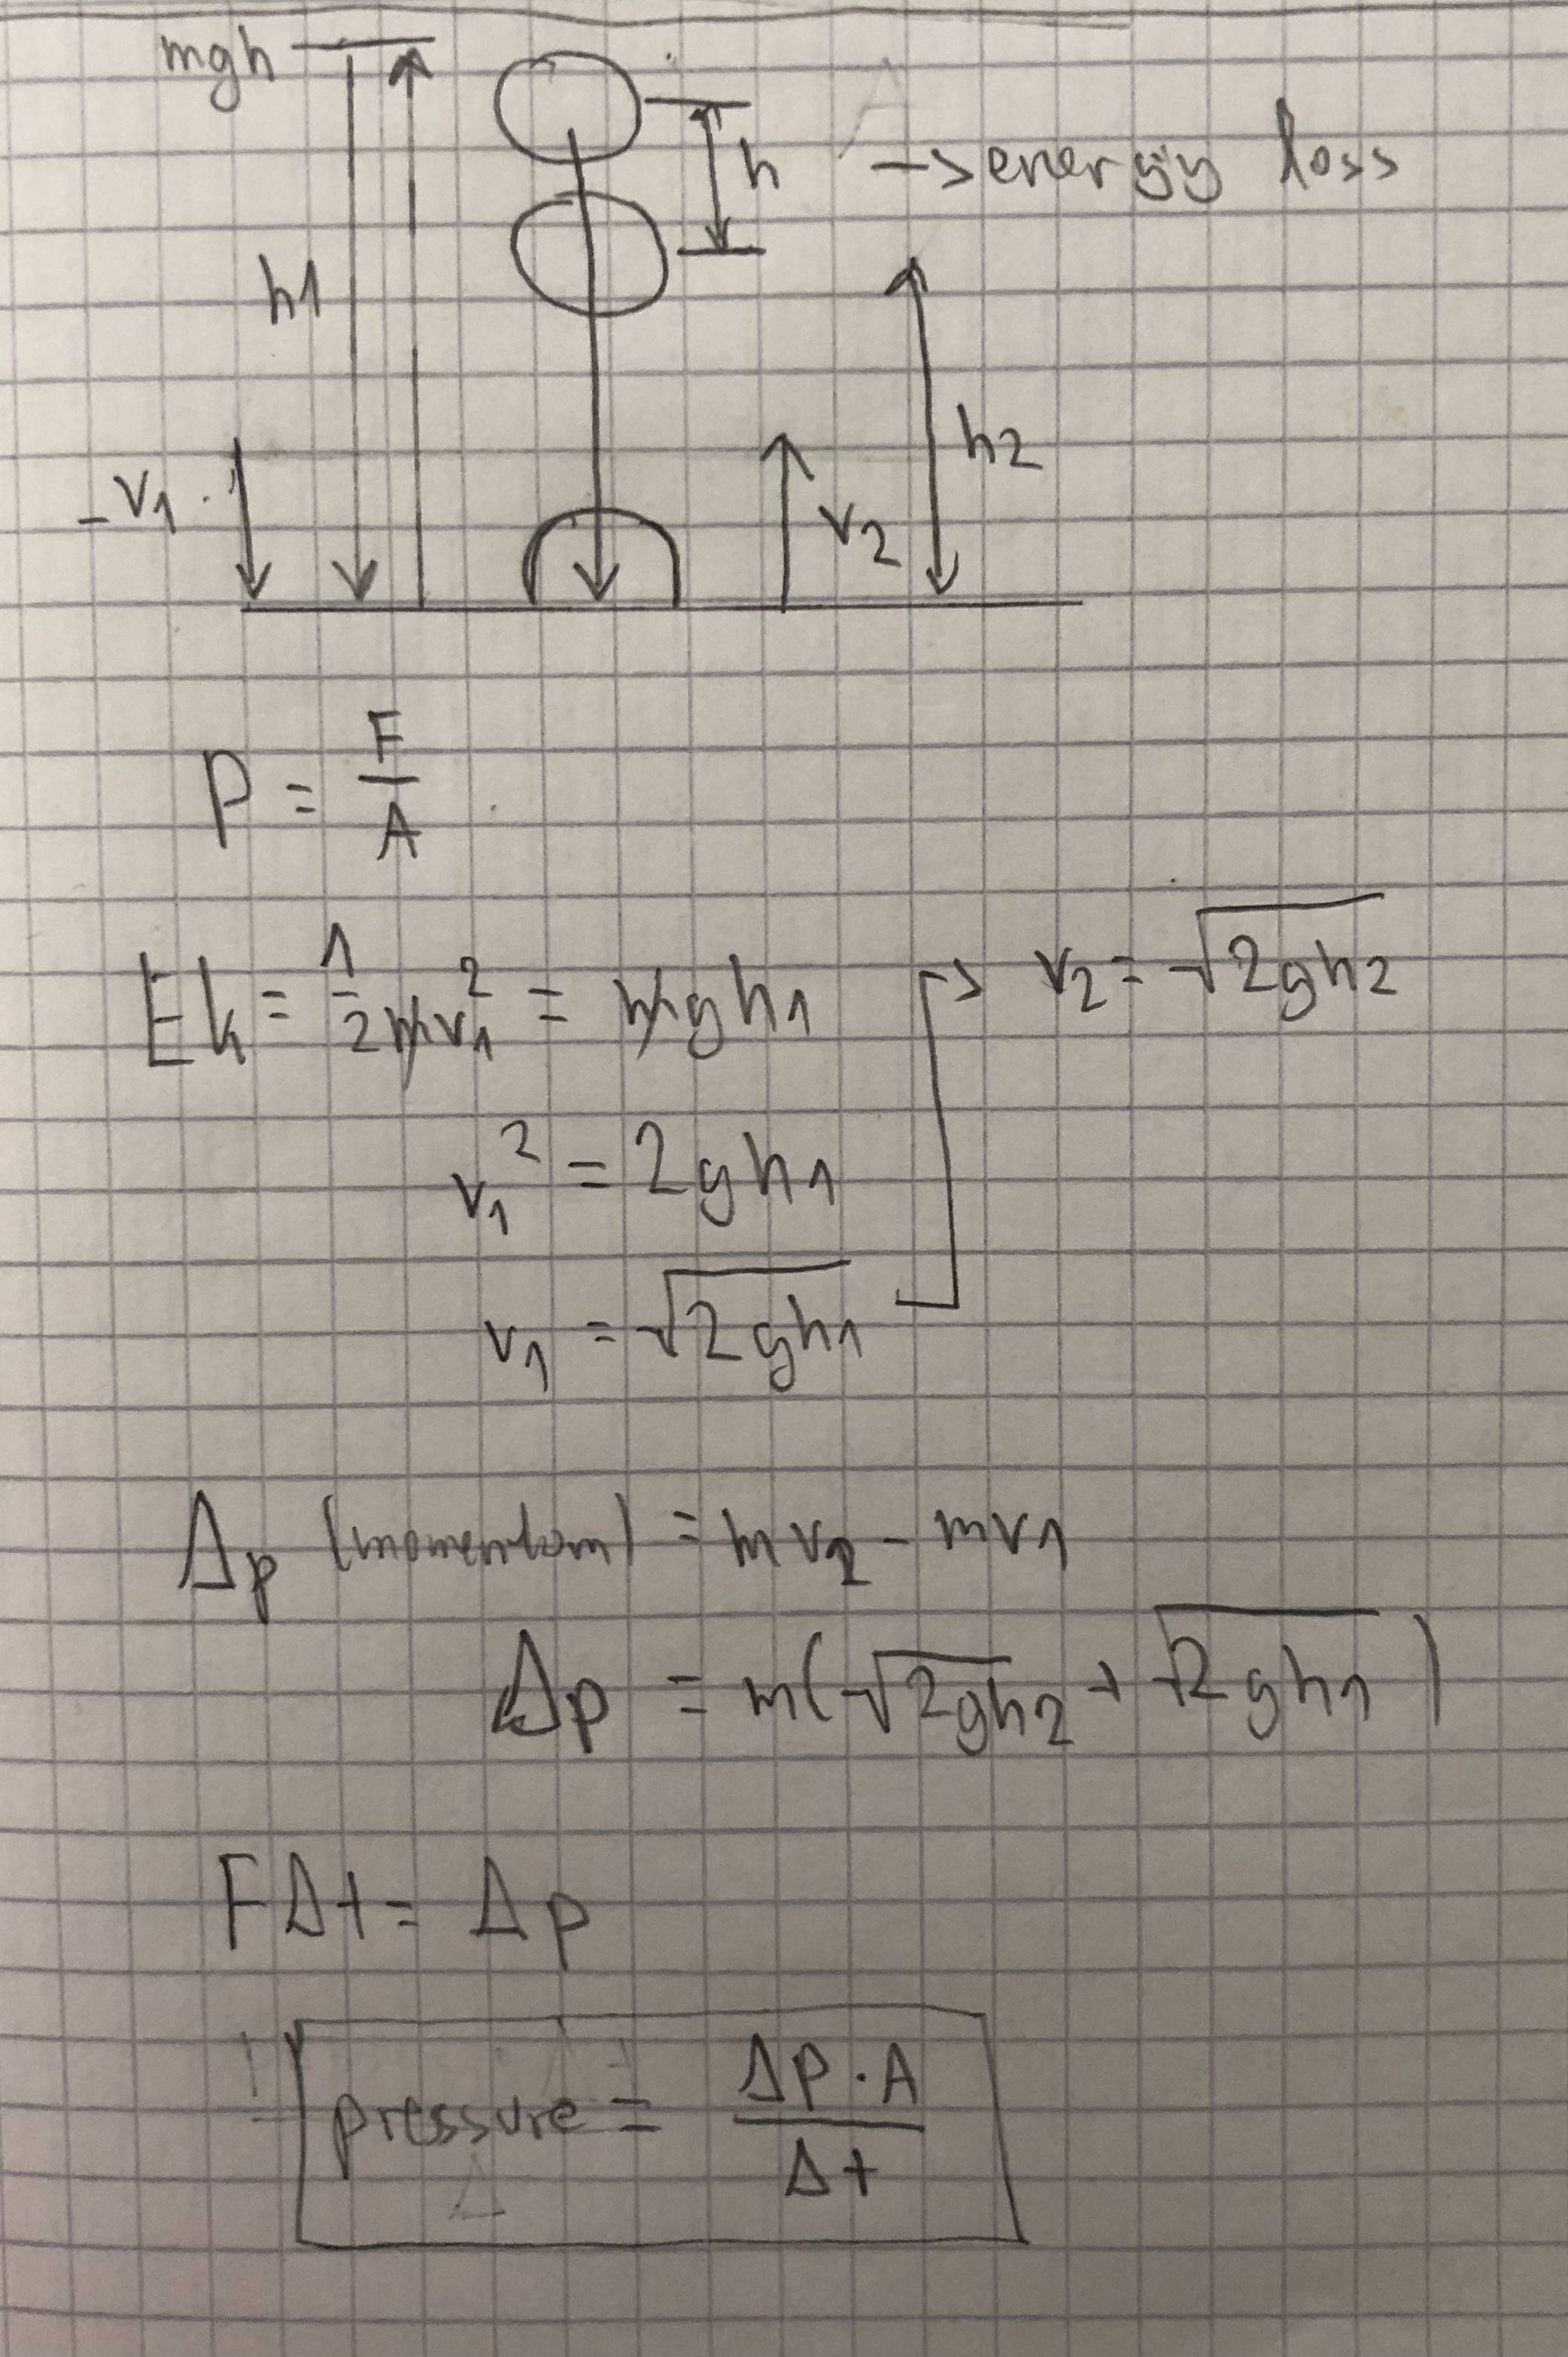 mgh
h → energyy loss
h1
-v₁
h2
v₂
P = F/A
Ek = 1/2 mv₁² = mgh₁
v₂ = √2gh2
v₁² = 2gh₁
v₁ = √2gh₁
Δp (momentum) = mv₂ - mv₁
Δp = m(√2gh₂ + √2gh₁)
FΔt = Δp
pressure = Δp·A/Δt